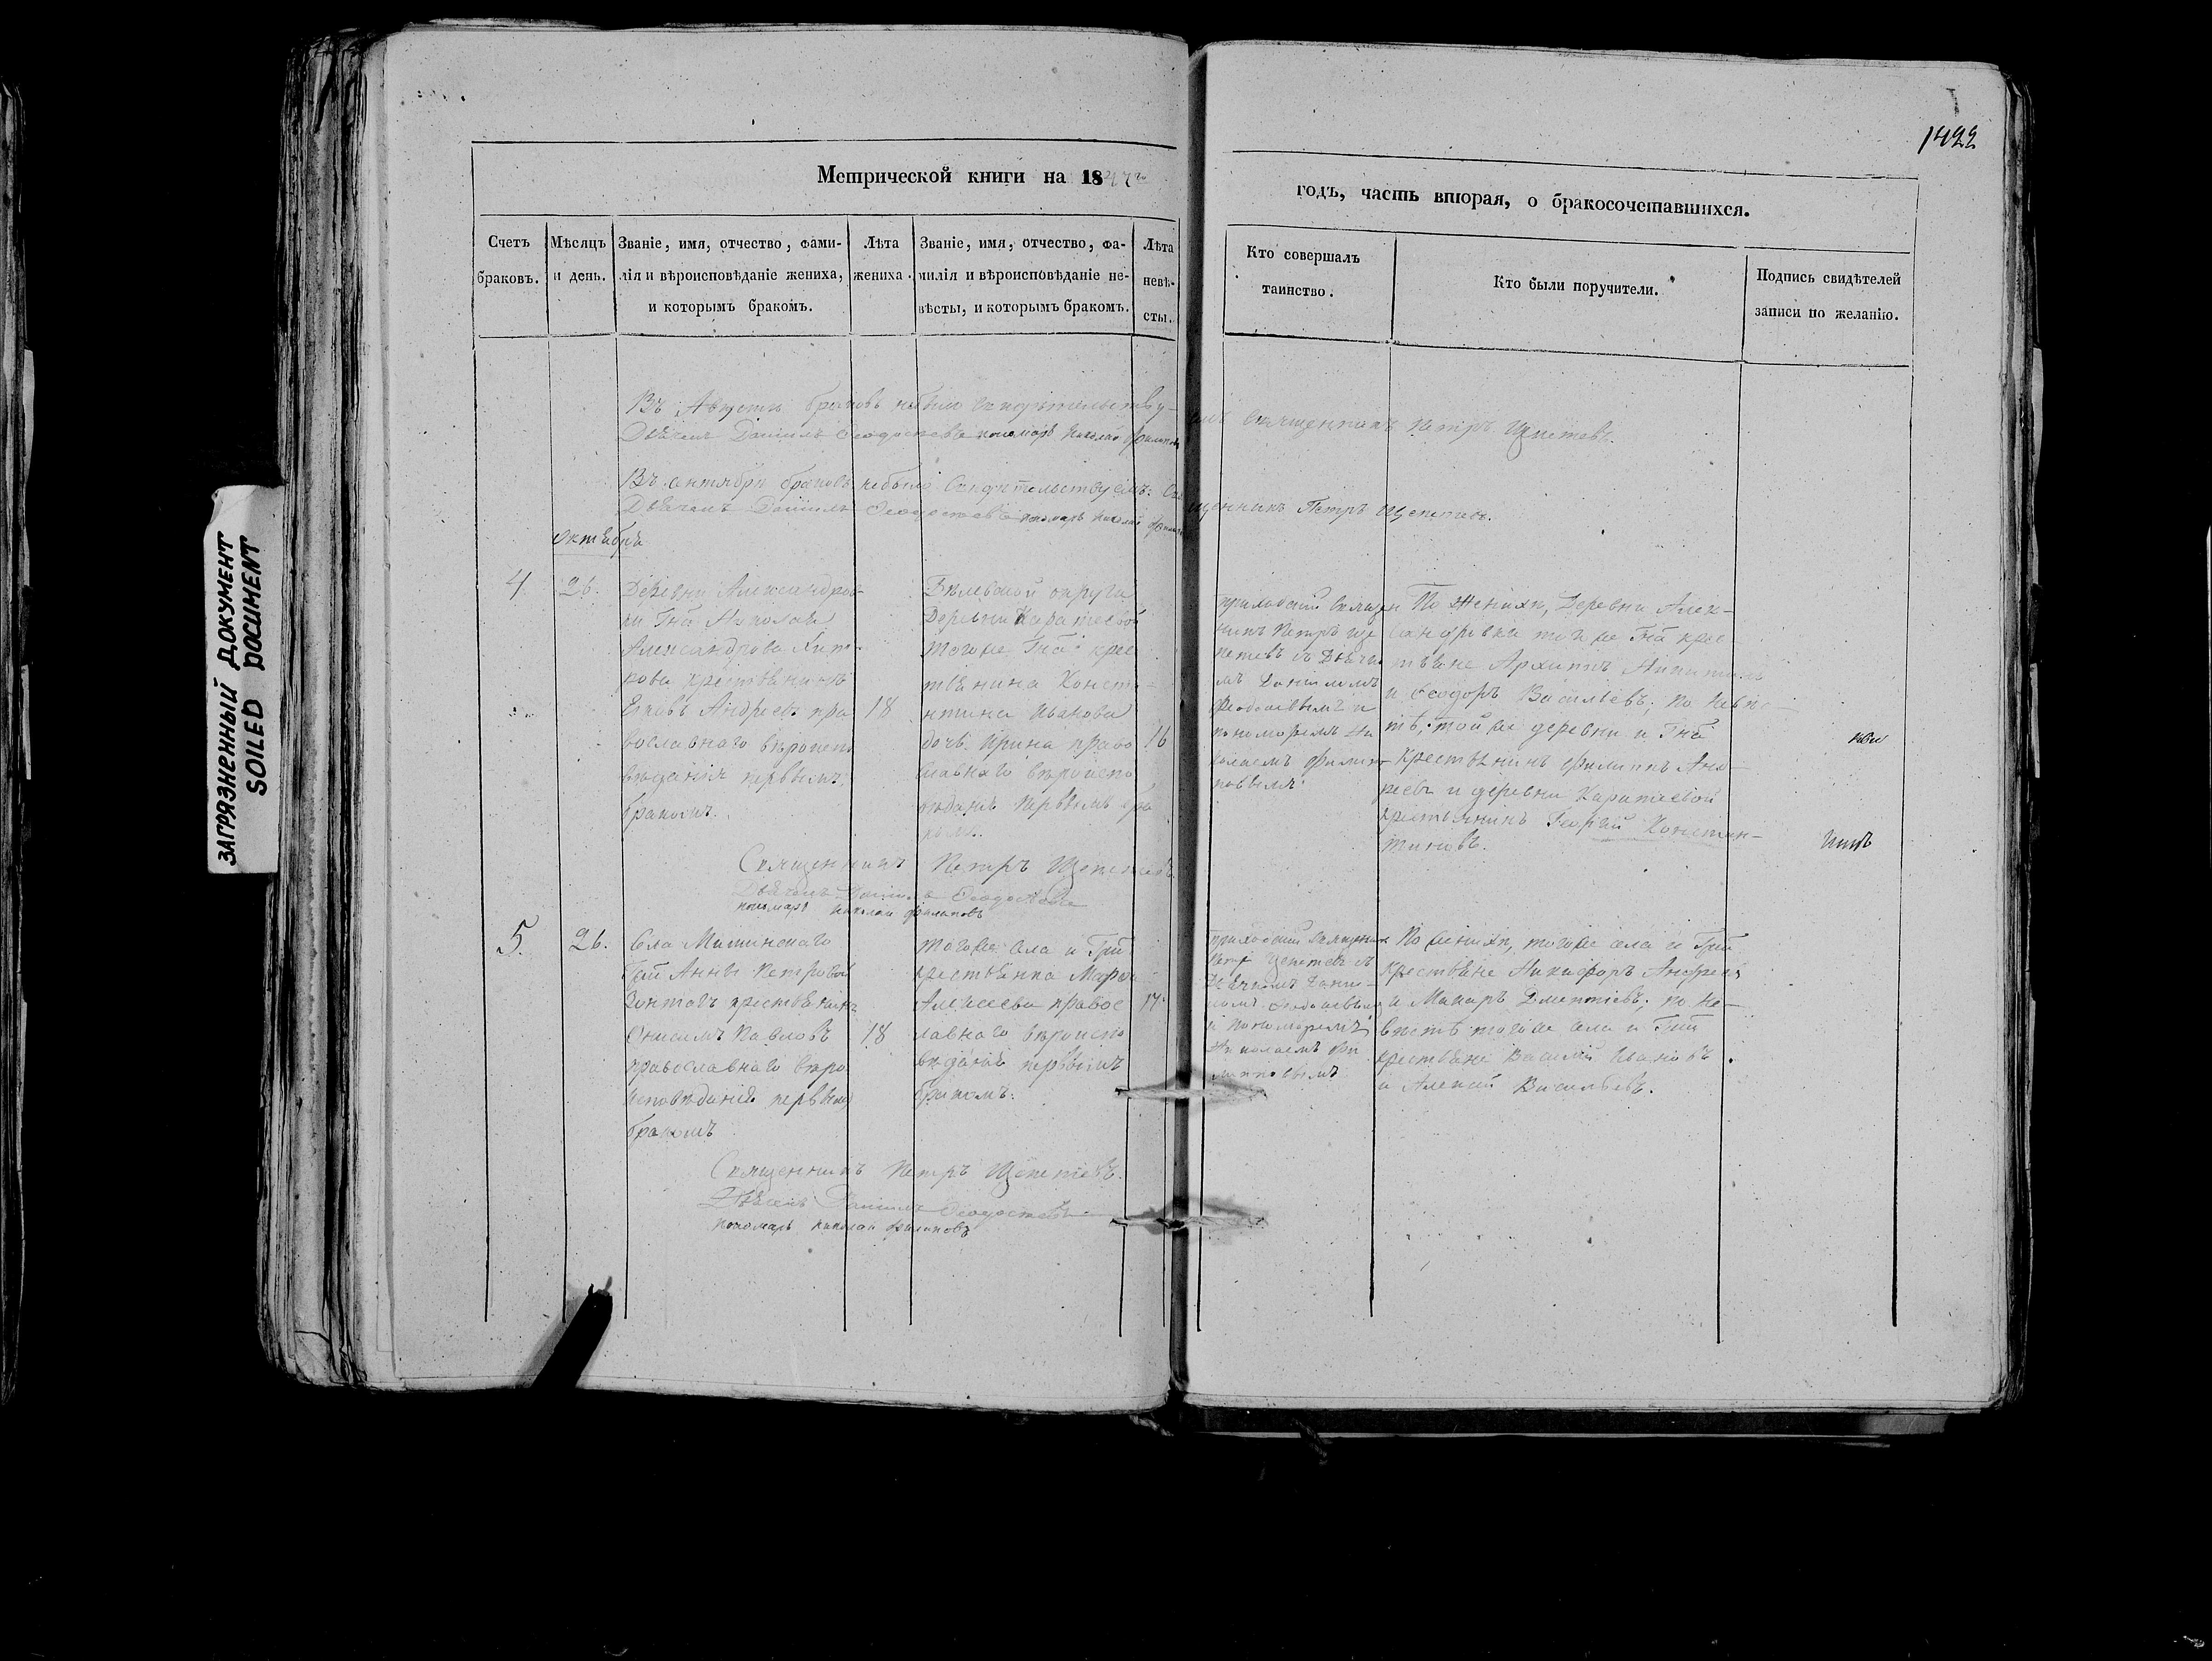 1422
ЗАГРЯЗНЕННЫЙ ДОКУМЕНТ
SOILED DOCUMENT
Метрической книги на 1847го
годъ, часть вторая, о бракосочетавшихся.
Счетъ браковъ.
Мѣсяцъ и день.
Званіе, имя, отчество, фами-
лія и вѣроисповѣданіе жениха,
и которымъ бракомъ.
Лѣта
жениха.
Званіе, имя, отчество, фа-
милія и вѣроисповѣданіе не-
вѣсты, и которымъ бракомъ.
Лѣта
невѣ-
сты.
Кто совершалъ
таинство.
Кто были поручители.
Подпись свидѣтелей
записи по желанію.
Въ Августѣ браковъ небыло Свидѣтельству-
емъ Священникъ Петръ Щепетевъ.
Дьячекъ Даніилъ Феодосіевъ пономарь Николай Филиповъ
Въ сентябрѣ браковъ небыло Свидѣтельствуемъ: Свя
щенникъ Петръ Щепетевъ.
Дьячекъ Даніилъ Феодосіевъ пономарь Николай Филипов
октября
4
26.
Деревни Александров-
ки Гна Николая
Александрова
крестьянинъ
Андреевъ пра
вославнаго вѣроиспо
вѣданія первымъ
бракомъ.
18
Бѣлевской округи
Деревни Каратеевой
тогоже Гна крес
тьянина Конста-
нтина Иванова
дочь Ирина право
славнаго вѣроиспо
вѣданія первымъ бра
комъ.
16
приходскій Священ
никъ Петръ Ще
петевъ съ Дьячко
мъ Даніиломъ
Феодосіевымъ и
пономоремъ Ни
колаемъ Филип-
повымъ
По Женихѣ, Деревни Алек-
сандровки тогоже Гна крес
тьяне Архипъ
и Феодоръ Васильевъ; по Невѣс-
тѣ, тойже деревни и Гна
крестьянинъ Филиппъ Анд-
реевъ и деревни Каратеевой
крестьянинъ Георгій Констан-
тиновъ.
Священникъ Петръ Щепетевъ
Дьячекъ Даніилъ Феодосіевъ
пономарь Николай Филиповъ
5.
26.
Села Мишинскаго
Гжи Анны Петровой
крестьянинъ
Онисимъ Павловъ
православнаго вѣро
исповѣданія первымъ
бракомъ
18
тогоже села и Гжи
крестьянка Марфа
Алексеева правос
лавнаго вѣроиспо
вѣданія первымъ
бракомъ.
17
приходскій Священник
Петр Щепетев съ
Дьячкомъ Дании-
ломъ Феодосіевым
и пономоремъ
Николаемъ Фи
липповымъ
По женихѣ, тогоже села и Гжи
крестьяне Никифоръ Андреев
и Макаръ Дментіевъ; по не-
вѣстѣ тогоже села и Гжи
крестьяне Василій Ивановъ
и Алексѣй Васильевъ.
Священникъ Петръ Щепетевъ.
Дьячекъ Даніилъ Феодосіевъ
пономарь Николай Филиповъ